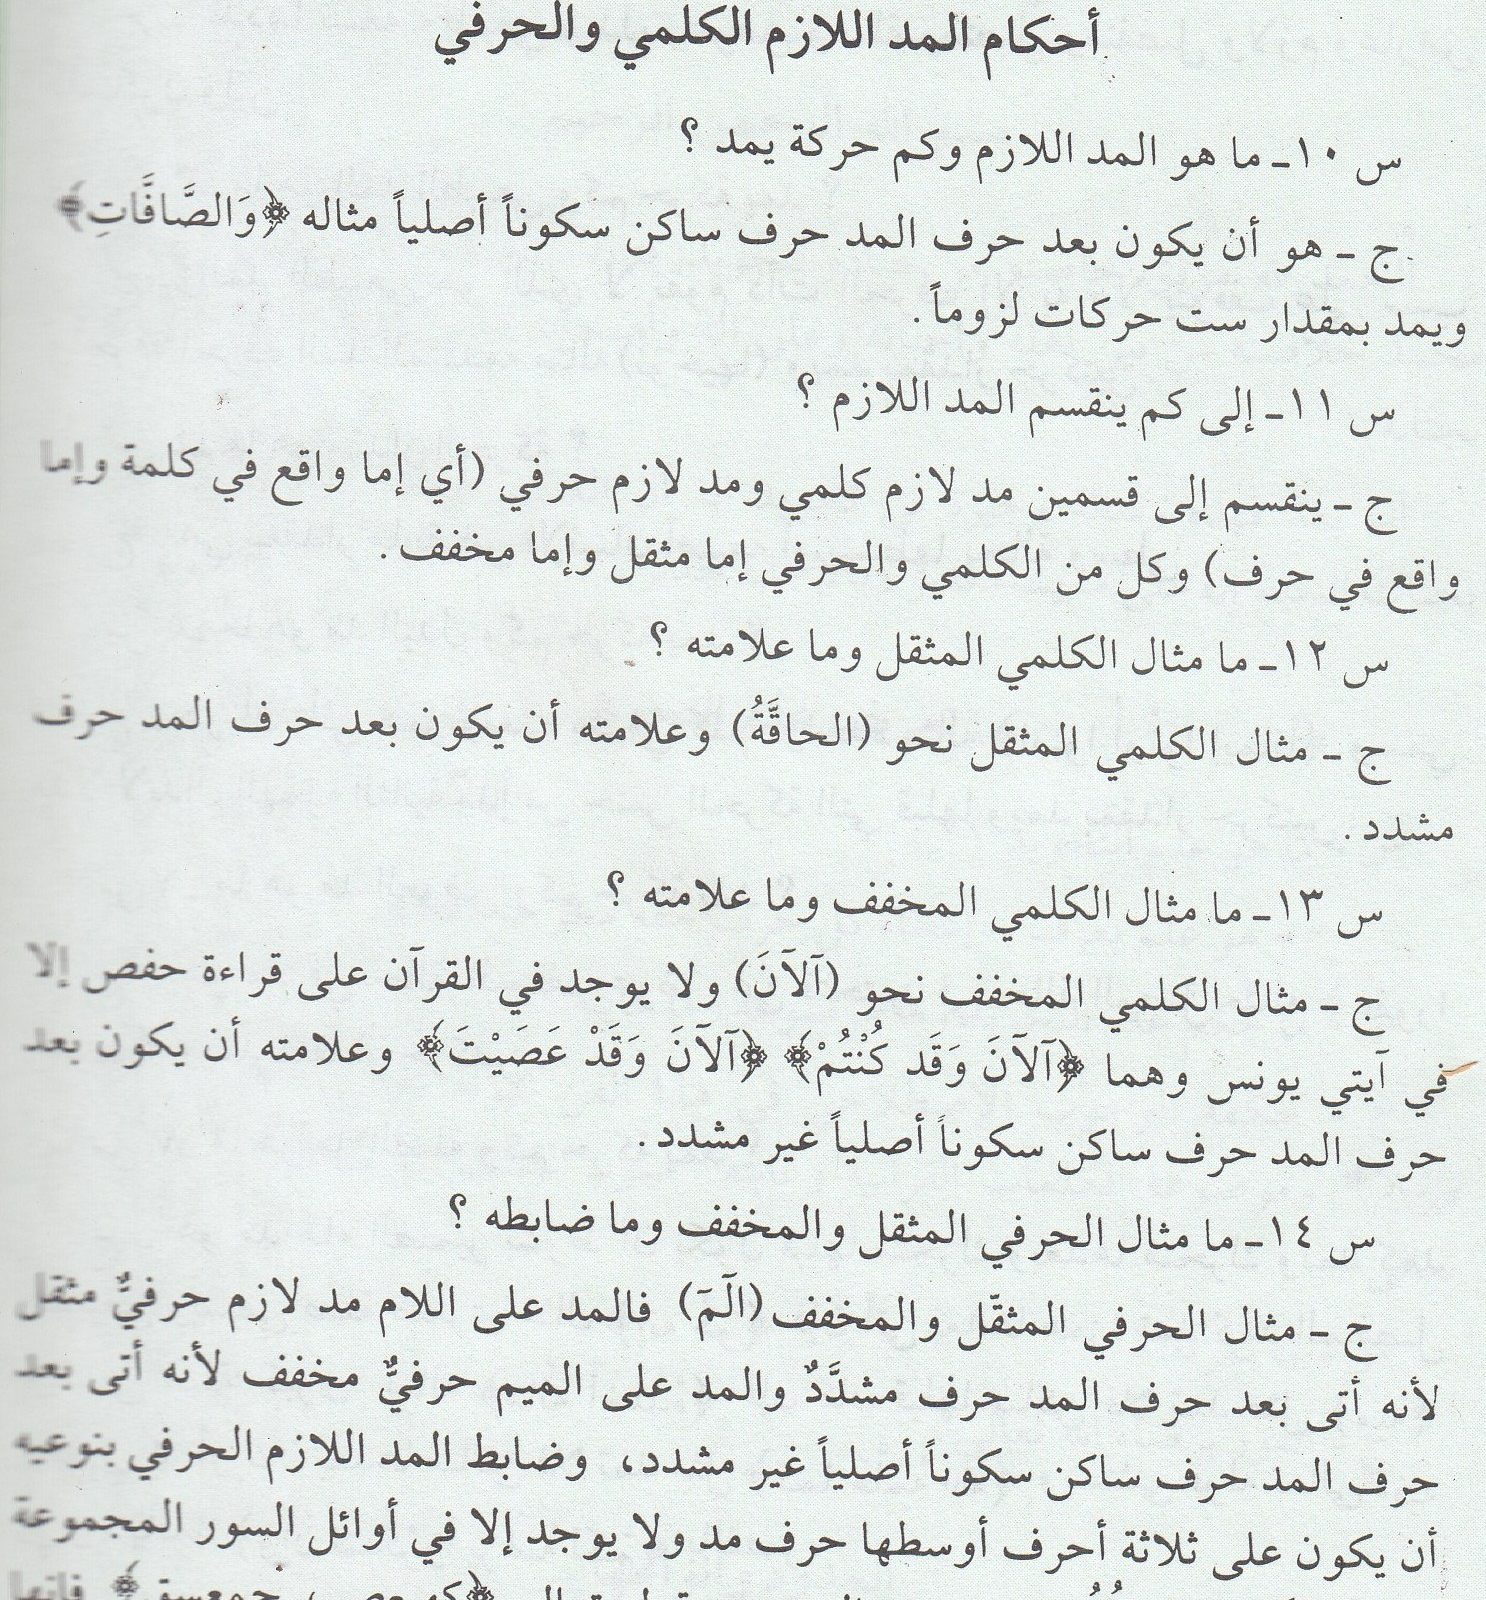 أحكام المد اللازم الكلمي والحرفي
س ١٠ـ ما هو المد اللازم وكم حركة يمد ؟
ج ـ هو أن يكون بعد حرف المد حرف ساكن سكوناً أصلياً مثاله ﴿وَالصَّافَّاتِ﴾
ويمد بمقدار ست حركات لزوماً .
س ١١ـ إلى كم ينقسم المد اللازم ؟
ج ـ ينقسم إلى قسمين مد لازم كلمي ومد لازم حرفي (أي إما واقع في كلمة وإما
واقع في حرف) وكل من الكلمي والحرفي إما مثقل وإما مخفف .
س ١٢ـ ما مثال الكلمي المثقل وما علامته ؟
ج ـ مثال الكلمي المثقل نحو (الحاقَّةُ) وعلامته أن يكون بعد حرف المد حرف
مشدد .
س ١٣ـ ما مثال الكلمي المخفف وما علامته ؟
ج ـ مثال الكلمي المخفف نحو (آلآنَ) ولا يوجد في القرآن على قراءة حفص إلا
في آيتي يونس وهما ﴿آلآنَ وَقَد كُنْتُمْ﴾ ﴿آلآنَ وَقَدْ عَصَيْتَ﴾ وعلامته أن يكون بعد
حرف المد حرف ساكن سكوناً أصلياً غير مشدد .
س ١٤ـ ما مثال الحرفي المثقل والمخفف وما ضابطه ؟
ج ـ مثال الحرفي المثقّل والمخفف (الٓمٓ) فالمد على اللام مد لازم حرفيٌّ مثقل
لأنه أتى بعد حرف المد حرف مشدَّدٌ والمد على الميم حرفيٌّ مخفف لأنه أتى بعد
حرف المد حرف ساكن سكوناً أصلياً غير مشدد، وضابط المد اللازم الحرفي بنوعيه
أن يكون على ثلاثة أحرف أوسطها حرف مد ولا يوجد إلا في أوائل السور المجموعة